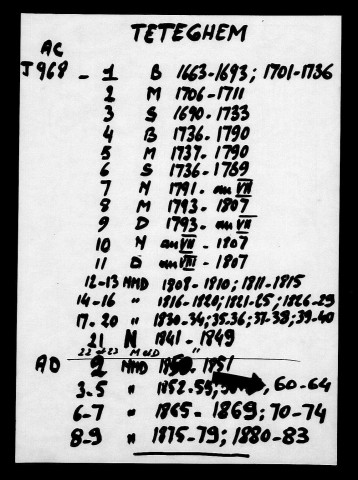 TETEGHEM
AC
J968 - 1 B 1663-1693; 1701-1736
2 M 1706-1711
3 S 1690-1733
4 B 1736-1790
5 M 1737-1790
6 S 1736-1769
7 N 1791- an VII
8 M 1793- 1807
9 D 1793- an VII
10 N an VII - 1807
11 D an VIII - 1807
12-13 NMD 1908-1810; 1811-1815
14-16 " 1816-1820; 1821-25; 1826-29
17-20 " 1830-34; 35-36; 37-38; 39-40
21 N 1841-1849
22 et 23 M et D "
AD 2 NMD 1850-1851
3-5 " 1852-55; , 60-64
6-7 " 1865-1869; 70-74
8-9 " 1875-79; 1880-83